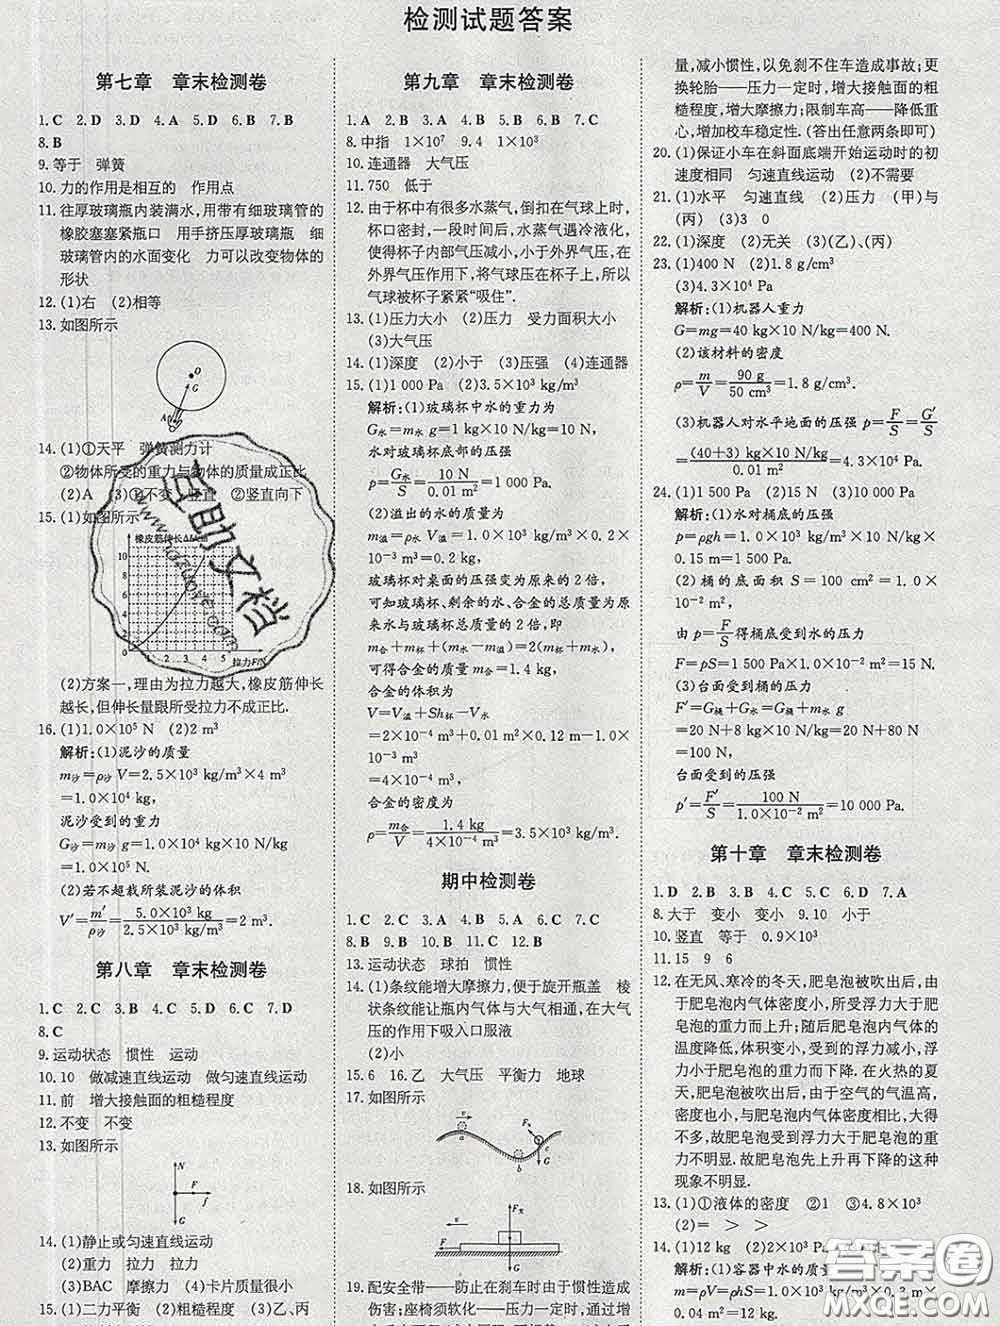 检测试题答案
第七章　章末检测卷
1.C　2.D　3.D　4.A　5.D　6.B　7.B
8.B
9.等于　弹簧
10.力的作用是相互的　作用点
11.往厚玻璃瓶内装满水,用带有细玻璃管的
橡胶塞塞紧瓶口　用手挤压厚玻璃瓶　细
玻璃管内的水面变化　力可以改变物体的
形状
12.(1)右　(2)相等
13.如图所示
O
G
A
14.(1)①天平　弹簧测力计
②物体所受的重力与物体的质量成正比
(2)A　(3)①不变　竖直　②竖直向下
15.(1)如图所示
橡皮筋伸长
10
8
6
4
2
0 1 2 3 4 5 拉力F/N
(2)方案一,理由为拉力越大,橡皮筋伸长
越长,但伸长量跟所受拉力不成正比.
16.(1)1.0×10⁵ N　(2)2 m³
解析:(1)泥沙的质量
m沙=ρ沙 V=2.5×10³ kg/m³×4 m³
=1.0×10⁴ kg,
泥沙受到的重力
G沙=m沙 g=1.0×10⁴ kg×10 N/kg
=1.0×10⁵ N.
(2)若不超载所装泥沙的体积
V′=m′/ρ沙=5.0×10³ kg/2.5×10³ kg/m³=2 m³.
第八章　章末检测卷
1.C　2.D　3.B　4.A　5.C　6.C　7.D
8.C
9.运动状态　惯性　运动
10.10　做减速直线运动　做匀速直线运动
11.前　增大接触面的粗糙程度
12.不变　不变
13.如图所示
N
F
f
G
14.(1)静止或匀速直线运动
(2)重力　拉力　拉力
(3)BAC　摩擦力　(4)卡片质量很小
15.(1)二力平衡　(2)摩擦　(3)乙、丁
第九章　章末检测卷
1.A　2.B　3.D　4.D　5.B　6.B　7.C
8.中指　1×10⁷　9.4　1×10³
10.连通器　大气压
11.750　低于
12.由于杯中有很多水蒸气,倒扣在气球上时,
杯口密封,一段时间后,水蒸气遇冷液化,
使得杯子内部气压减小,小于外界气压,在
外界气压作用下,将气球压在杯子里,所以
气球被杯子紧紧“吸住”.
13.(1)压力大小　(2)压力　受力面积大小
(3)大气压
14.(1)深度　(2)小于　(3)压强　(4)连通器
15.(1)1 000 Pa　(2)3.5×10³ kg/m³
解析:(1)玻璃杯中水的重力为
G水=m水 g=1 kg×10 N/kg=10 N.
水对玻璃杯底部的压强
p=G水/S=10 N/0.01 m²=1 000 Pa.
(2)溢出的水的质量为
m溢=ρ水 V溢=1.0×10³ kg/m³×0.2×
10⁻³ m³=0.2 kg,
玻璃杯对桌面的压强变为原来的2倍,
可知玻璃杯、剩余的水、合金的总质量为原
来水与玻璃杯总质量的2倍,即
m合+m杯+(m水−m溢)=2(m水+m杯),
可得合金的质量m合=1.4 kg,
合金的体积为
V=V溢+Sh杯−V水
=2×10⁻⁴ m³+0.01 m²×0.12 m−1.0×
10⁻³ m³
=4×10⁻⁴ m³,
合金的密度为
ρ=m合/V=1.4 kg/4×10⁻⁴ m³=3.5×10³ kg/m³.
期中检测卷
1.C　2.C　3.A　4.A　5.C　6.C　7.C
8.B　9.B　10.B　11.C　12.B
13.运动状态　球拍　惯性
14.(1)条纹能增大摩擦力,便于旋开瓶盖　棱
状条纹能让瓶内气体与大气相通,在大气
压的作用下吸入口服液
(2)小
15.6　16.乙　大气压　平衡力　地球
17.如图所示
v
a
b
c
G
18.如图所示
v
G
19.配安全带——防止在刹车时由于惯性造成
伤害;座椅须软化——压力一定时,通过增
量,减小惯性,以免刹不住车造成事故;更
换轮胎——压力一定时,增大接触面的粗
糙程度,增大摩擦力;限制车高——降低重
心,增加校车稳定性.(答出任意两条即可)
20.(1)保证小车在斜面底端开始运动时的初
速度相同　匀速直线运动　(2)不需要
21.(1)水平　匀速直线　(2)压力　(甲)与
(丙)　(3)3　0
22.(1)深度　(2)无关　(3)(乙)、(丙)
23.(1)400 N　(2)1.8 g/cm³
(3)4.3×10⁴ Pa
解析:(1)机器人重力
G=mg=40 kg×10 N/kg=400 N.
(2)该材料的密度
ρ=m/V=90 g/50 cm³=1.8 g/cm³.
(3)机器人对水平地面的压强 p=F/S=G′/S
=(40+3) kg×10 N/kg/0.01 m²=4.3×10⁴ Pa.
24.(1)1 500 Pa　(2)15 N　(3)10 000 Pa
解析:(1)水对桶底的压强
p=ρgh=1.0×10³ kg/m³×10 N/kg×
0.15 m=1 500 Pa.
(2)桶的底面积 S=100 cm²=1.0×
10⁻² m²,
由 p=F/S得桶底受到水的压力
F=pS=1 500 Pa×1.0×10⁻² m²=15 N.
(3)台面受到桶的压力
F′=G桶+G水=G桶+m水 g
=20 N+8 kg×10 N/kg=20 N+80 N
=100 N,
台面受到的压强
p′=F′/S=100 N/1.0×10⁻² m²=10 000 Pa.
第十章　章末检测卷
1.D　2.B　3.B　4.C　5.C　6.D　7.A
8.大于　变小　变小　9.10　小于
10.竖直　等于　0.9×10³
11.15　9　6
12.在无风、寒冷的冬天,肥皂泡被吹出后,由
于肥皂泡内气体密度小,所受浮力大于肥
皂泡的重力而上升;随后肥皂泡内气体的
温度降低,体积变小,受到的浮力减小,浮
力小于肥皂泡的重力而下降.在火热的夏
天,肥皂泡被吹出后,由于空气的气温高,
密度变小,与肥皂泡内气体密度相近,大得
不多,故肥皂泡受到浮力大于肥皂泡的重
力不明显.故肥皂泡先上升再下降的这种
现象不明显.
13.(1)①液体的密度　②1　③4.8×10³
(2)=　>　>
14.(1)12 kg
解析:(1)容器中水的质量
m=ρV=ρhS=1.0×10³ kg/m³
0.04 m²=12 kg.
答案圈
MXQE.COM
互助文档